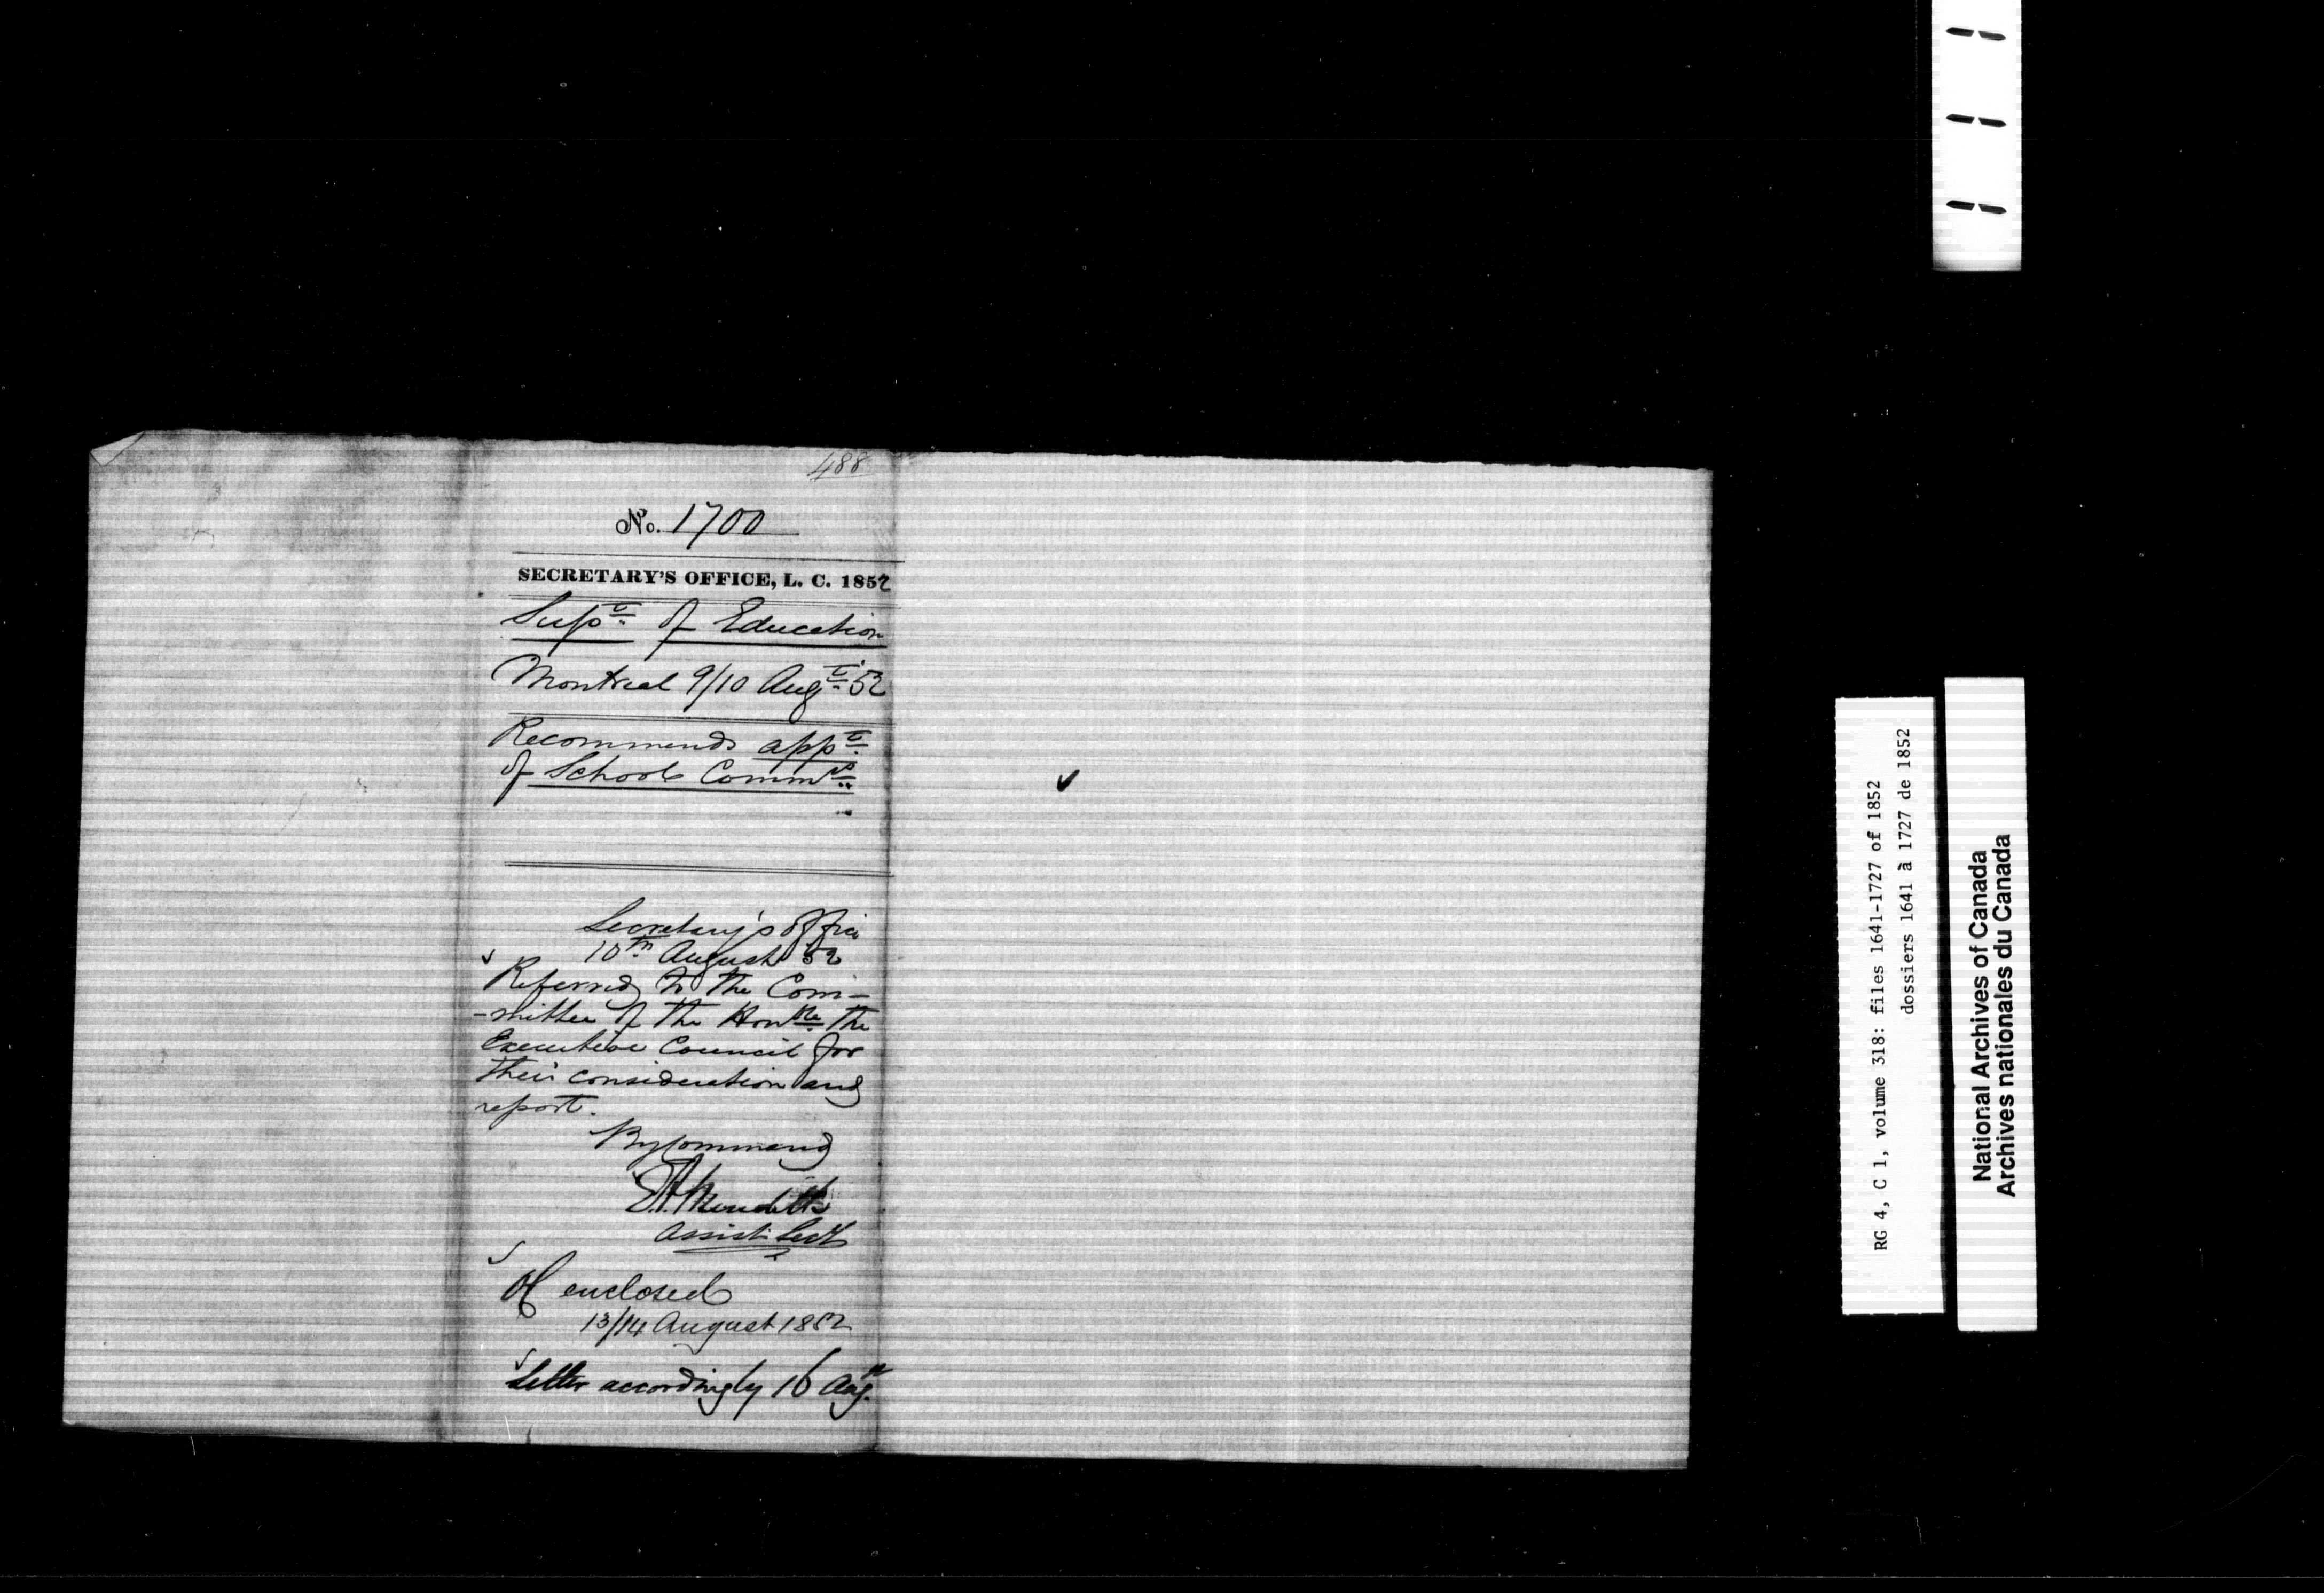 488
No. 1700
SECRETARY'S OFFICE, L. C. 1852
Supt. of Education
Montreal 9/10 Augt. '52
Recommends appt.
of School Commrs.
Secretary's Office
10th August '52
Referred to the Com-
-mittee of the Honble. the
Executive Council for
their consideration and
report.
By Command
Assist. Secy
OC enclosed
13/14 August 1852
Letter accordingly 16 Augt.
RG 4, C 1, volume 318: files 1641-1727 of 1852
dossiers 1641 à 1727 de 1852
National Archives of Canada
Archives nationales du Canada